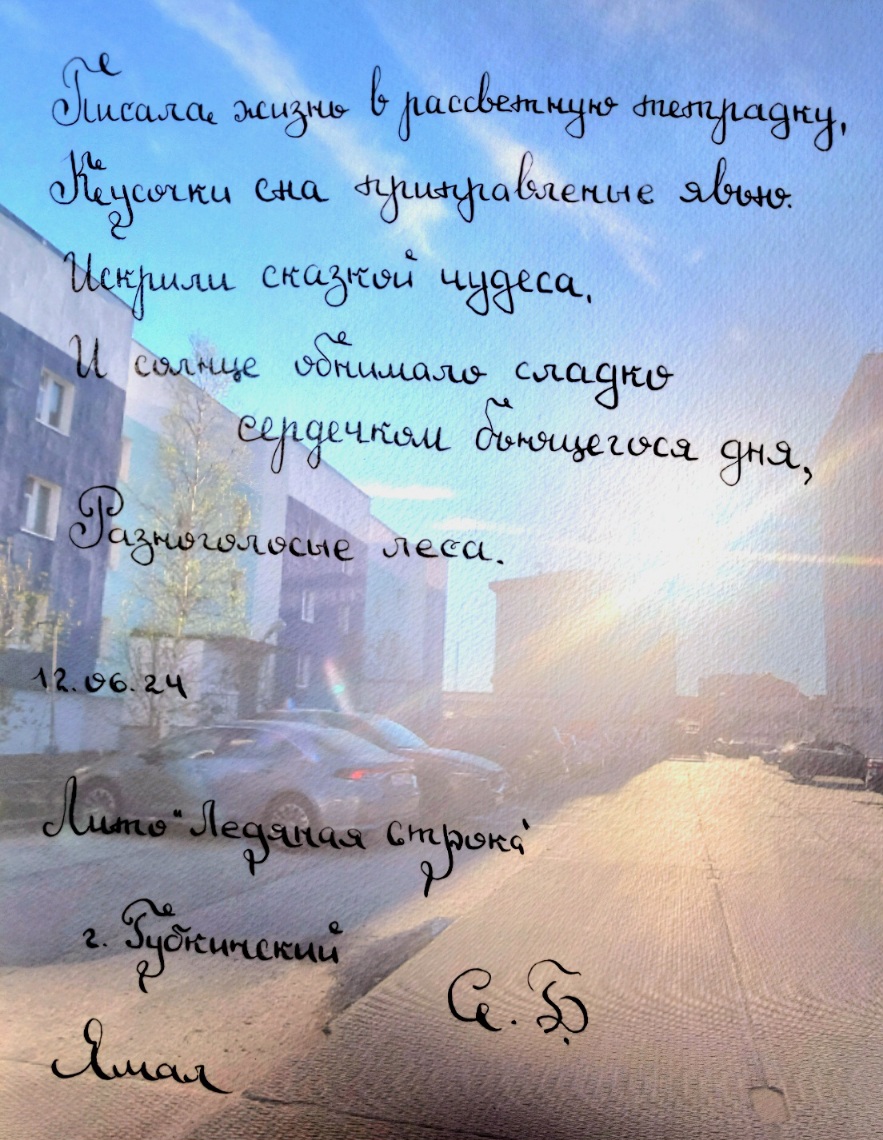 Писала жизнь в рассветную тетрадку,
Кусочки сна приправленые явью.
Искрили сказкой чудеса,
И солнце обнимало сладко
сердечком бьющегося дня,
Разноголосые леса.
12.06.24
Лито "Ледяная строка"
г. Губкинский
Ямал
С. Б